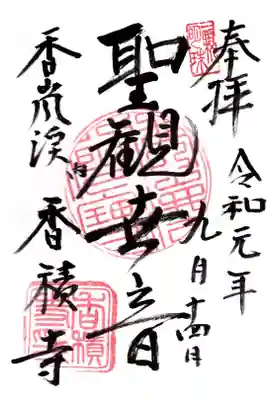 奉拝
令和元年
九月十四日
聖観世音
香嵐渓
香積寺